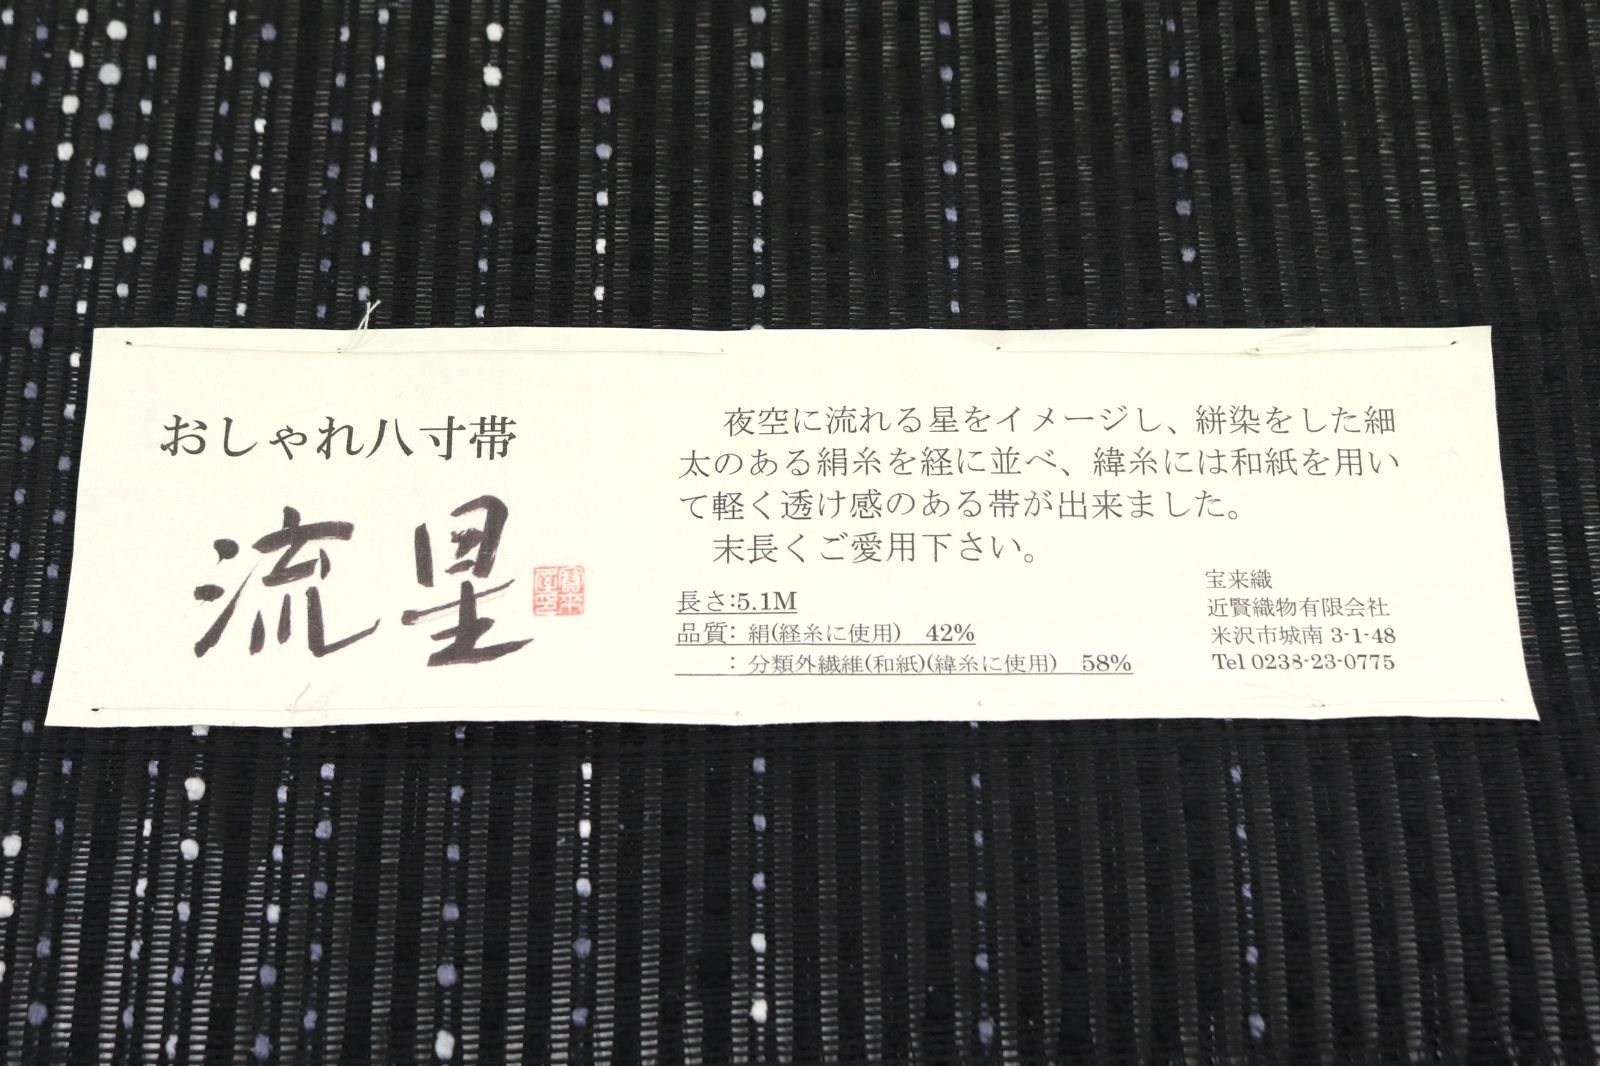 おしゃれ八寸帯
流星
夜空に流れる星をイメージし、絣染をした細
太のある絹糸を経に並べ、緯糸には和紙を用い
て軽く透け感のある帯が出来ました。
末長くご愛用下さい。
長さ:5.1M
品質: 絹(経糸に使用) 42%
: 分類外繊維(和紙)(緯糸に使用) 58%
宝来織
近賢織物有限会社
米沢市城南 3-1-48
Tel 0238-23-0775